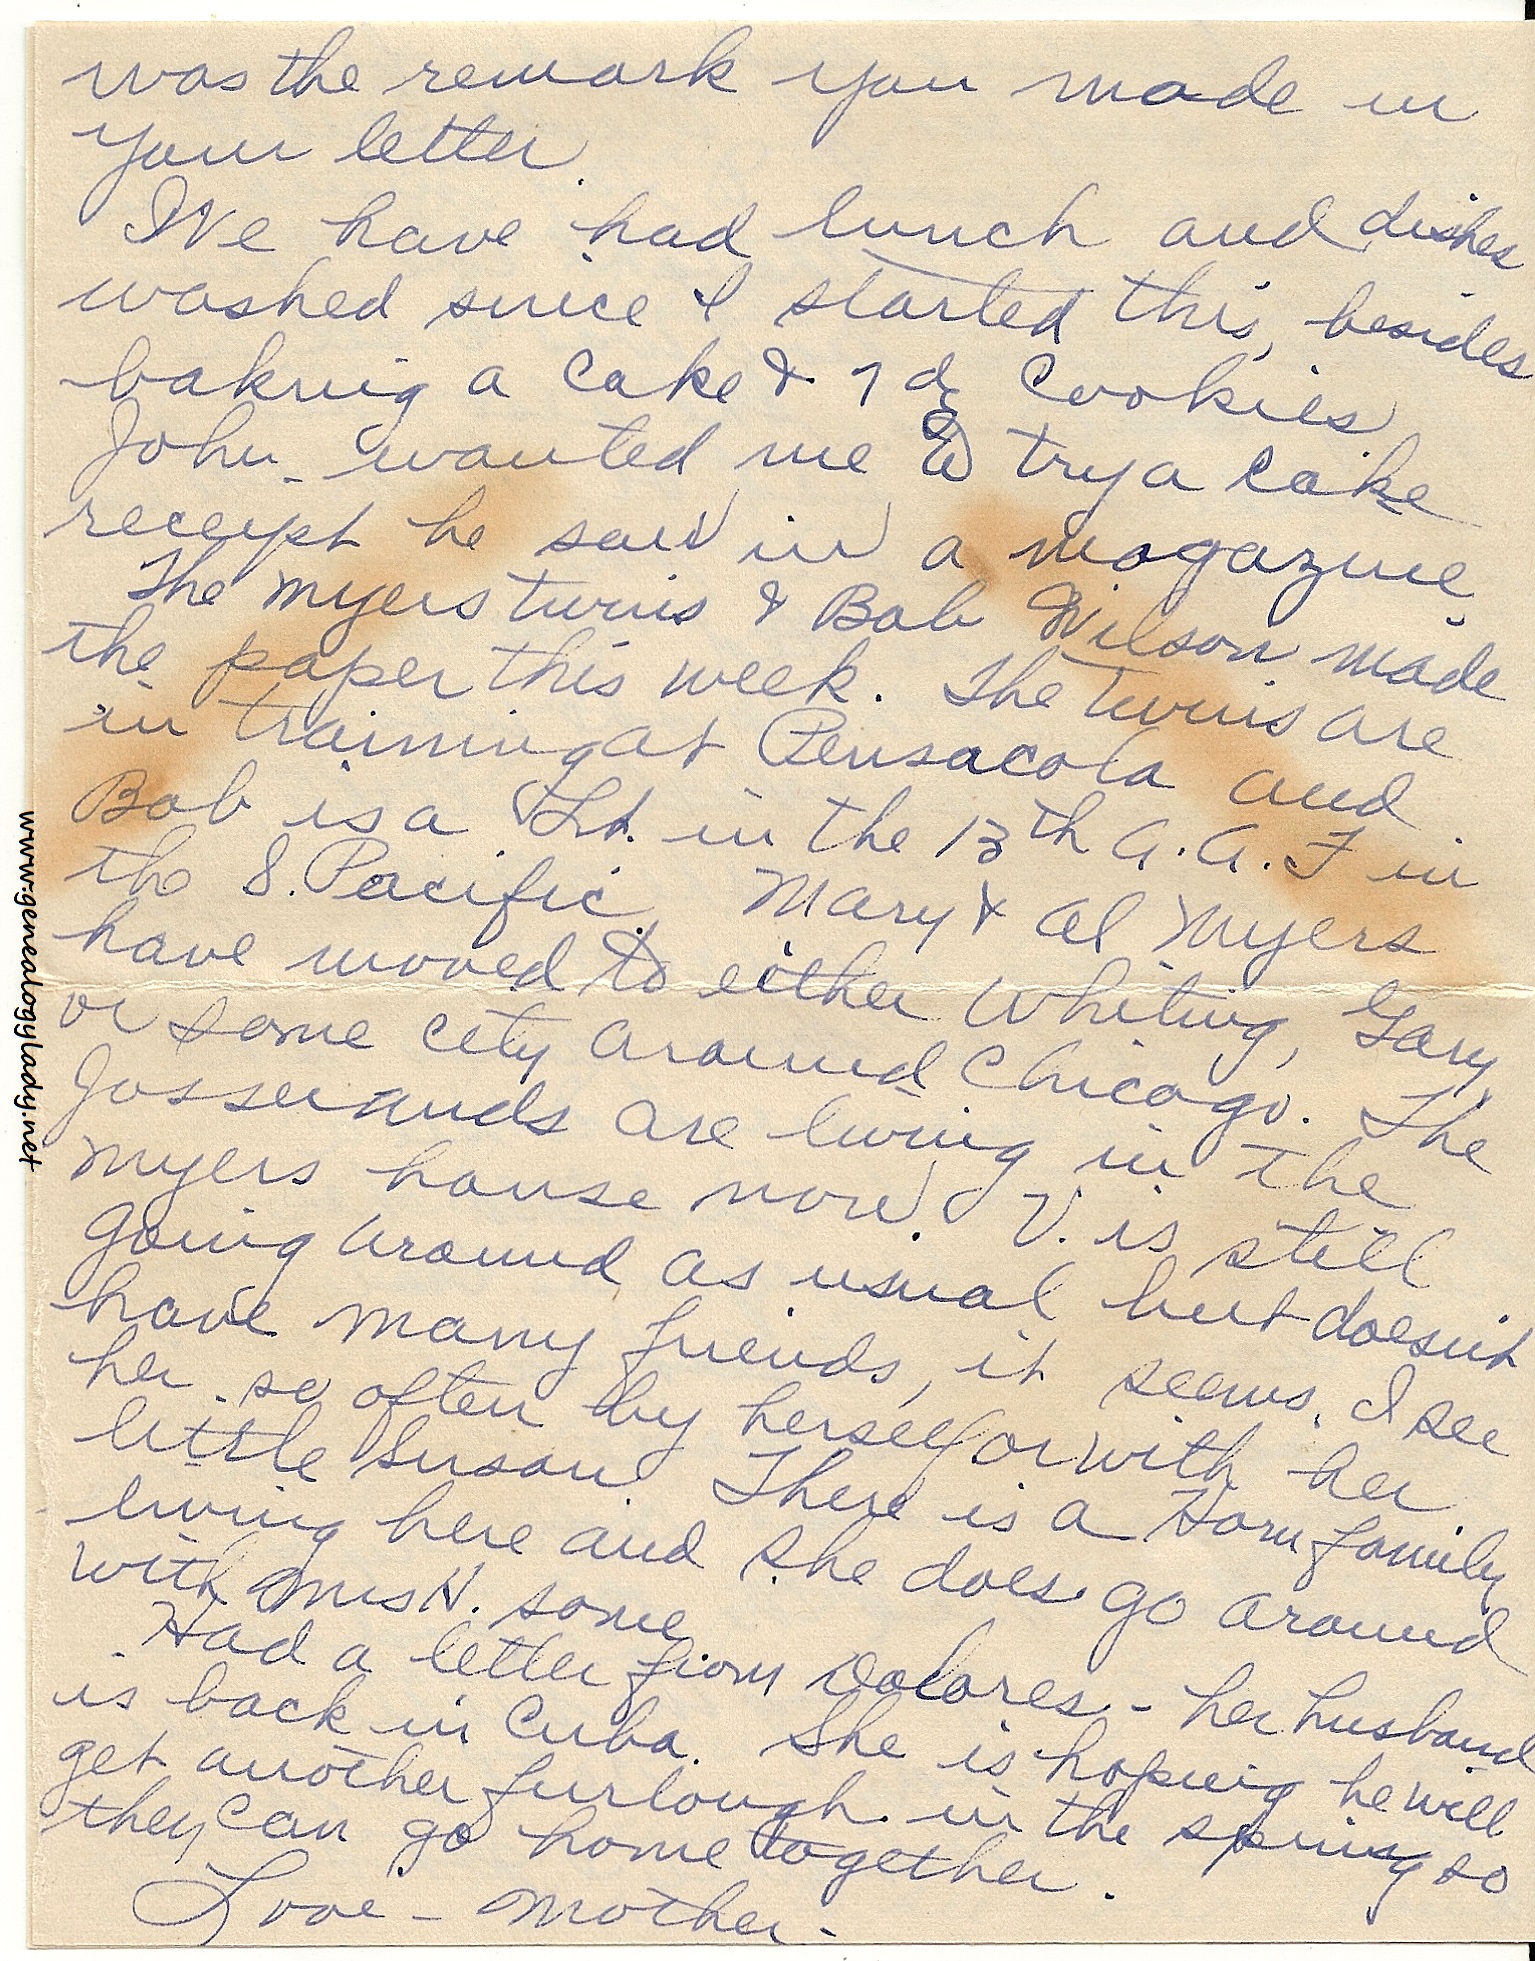 was the remark you made in
your letter.
I've have had lunch and dishes
washed since I started this, besides
baking a cake & 7 dz cookies.
John - wanted me to try a cake
receipt he saw in a magazine.
The Myers twins & Bob Wilson made
the paper this week. The twins are
in training at Pensacola and
Bob is a Lt. in the 13th A.A.F in
the S. Pacific. Mary & Al Myers
have moved to either Whiting, Gary
or some city around Chicago. The
Josserands are living in the
Myers house now. V. is still
going around as usual but doesn't
have many friends, it seems. I see
her so often by herself or with her
little Susan. There is a Horn family
living here and she does go around
with Mrs H. some.
Had a letter from Dolores - her husband
is back in Cuba. She is hoping he will
get another furlough in the spring so
they can go home together.
Love - Mother -
www.genealogylady.net